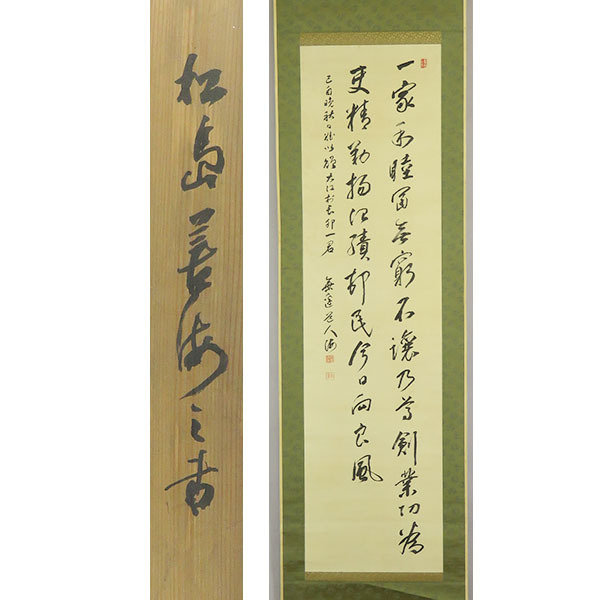 松島善海之書
一家和睦冨無窮不讓乃尊創業功為
吏精勤揚治績邨民今日向良風
己酉晩秋日 以贈大江村長卯一君
無邊道人海